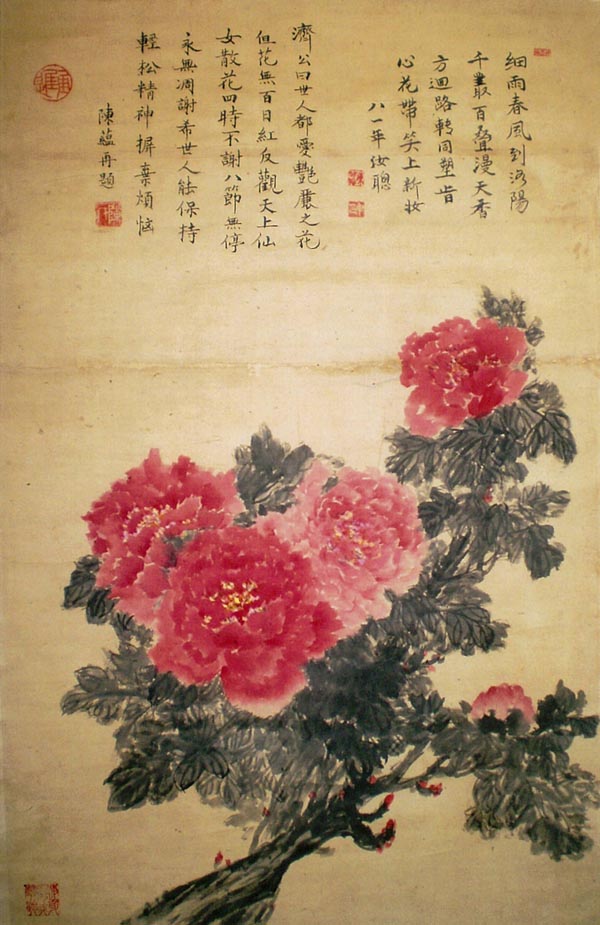 細雨春風到洛陽
千叢百疊漫天香
方迴路轉同塑昔
心花帶笑上新妝
八一年 聰
濟公曰世人都愛艷麗之花
但花無百日紅反觀天上仙
女散花四時不謝八節無停
永無凋謝希世人能保持
輕松精神摒棄煩惱
陳蘊再題